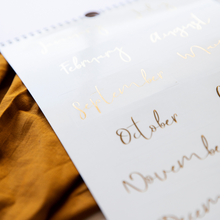 February August
September
October
November